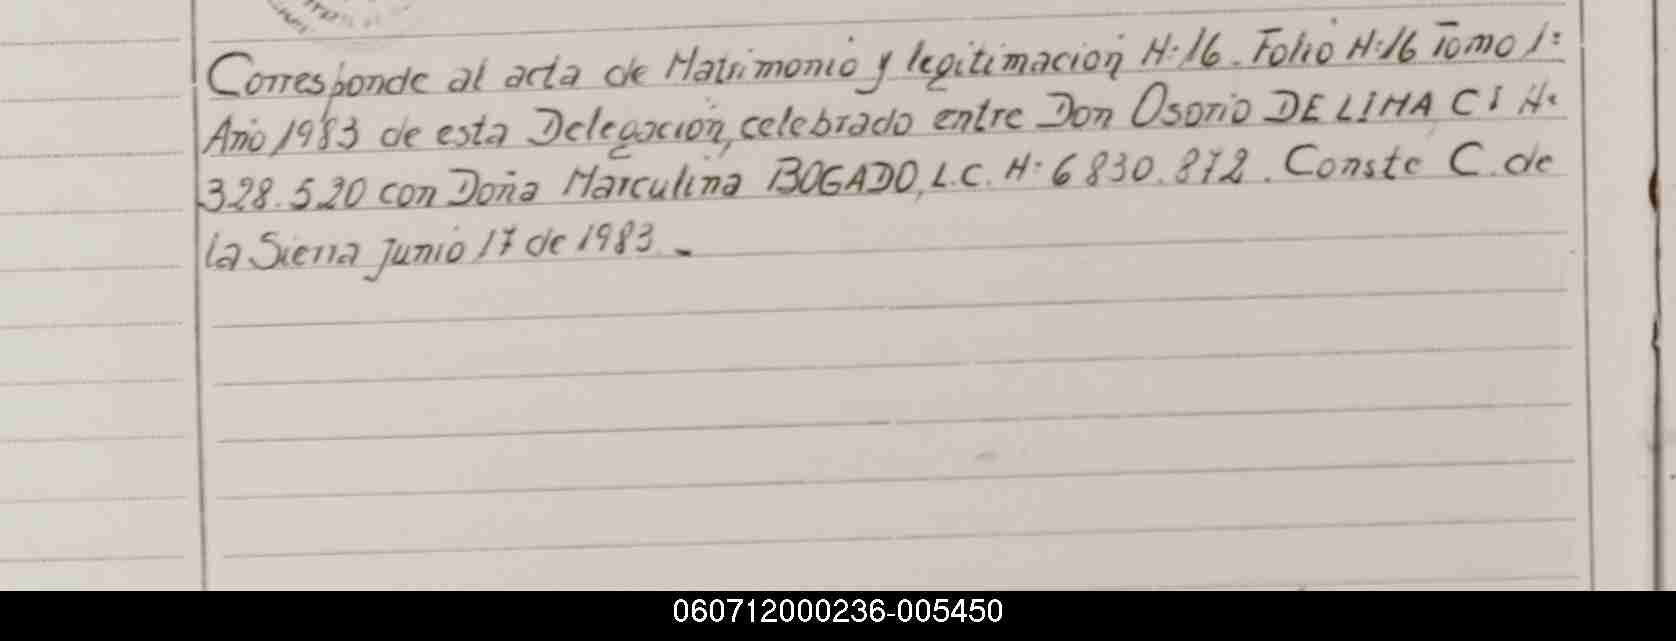 Corresponde al acta de Matrimonio y legitimación N: 16. Folio N: 16 Tomo 1:
Año 1983 de esta Delegación, celebrado entre Don Osorio DE LIMA C I N.
328.520 con Doña Marculina BOGADO, L.C. N: 6 830.872. Conste C. de
la Sierra Junio 17 de 1983.-
060712000236-005450